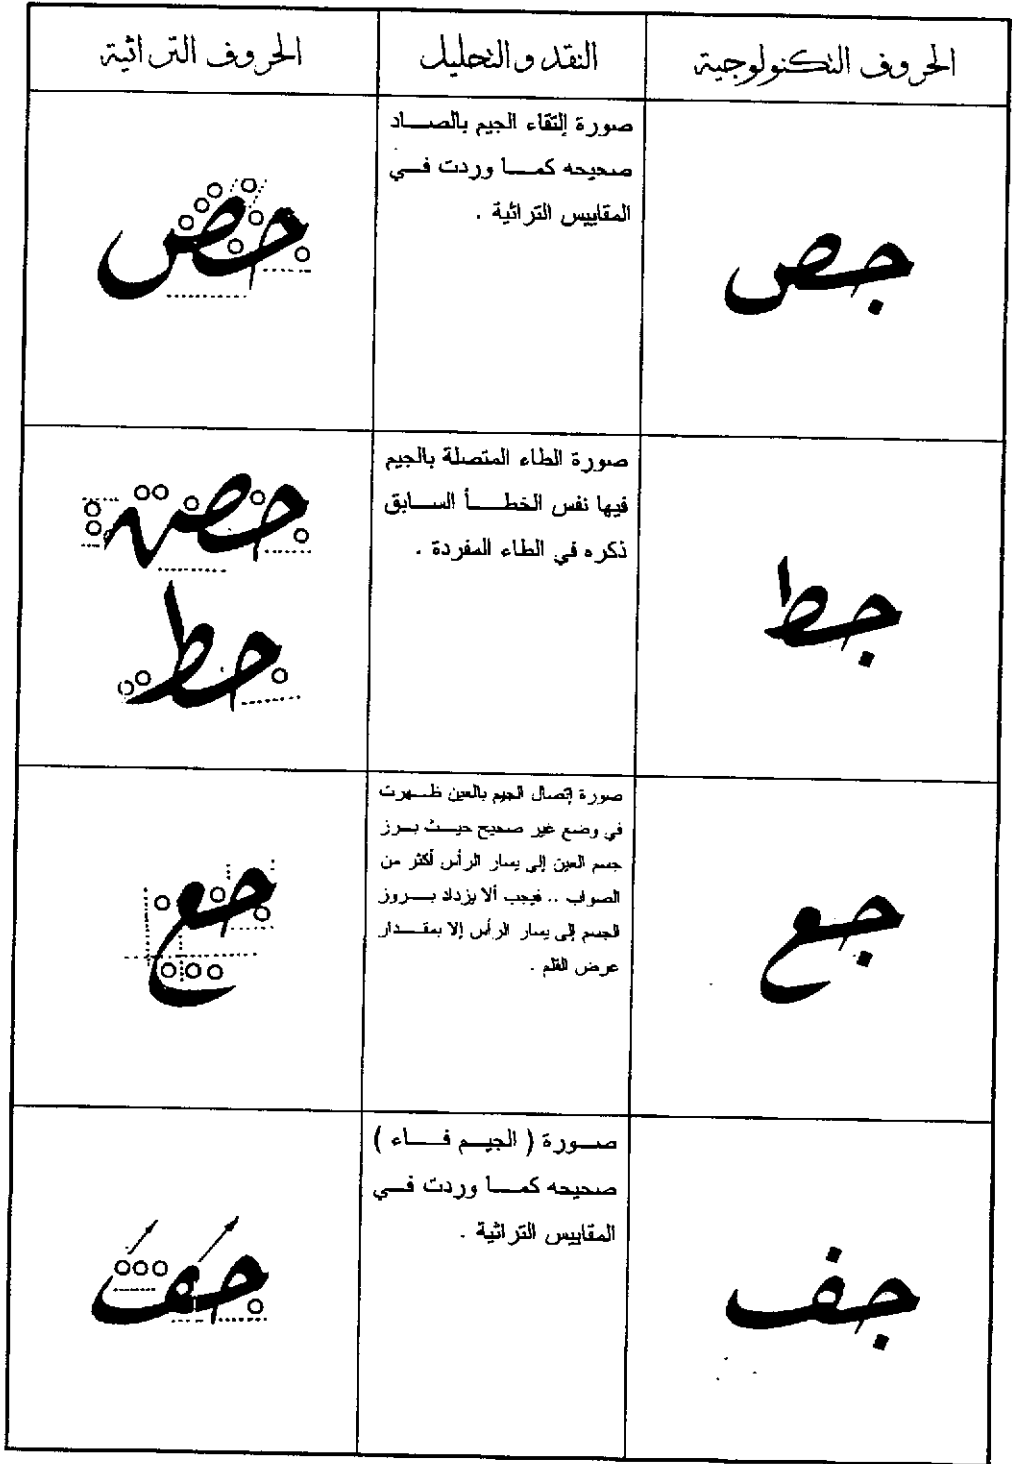 الحروف التكنولوجية
النقد والتحليل
الحروف التراثية
جص
صورة إلتقاء الجيم بالصاد
صحيحه كما وردت في
المقاييس التراثية .
حص
جط
صورة الطاء المتصلة بالجيم
فيها نفس الخطأ السابق
ذكره في الطاء المفردة .
حصه
حط
جع
صورة إتصال الجيم بالعين ظهرت
في وضع غير صحيح حيث برز
جسم العين إلى يسار الرأس أكثر من
الصواب .. فيجب ألا يزداد بروز
الجسم إلى يسار الرأس إلا بمقدار
عرض القلم .
حع
جف
صورة ( الجيم فاء )
صحيحه كما وردت في
المقاييس التراثية .
حف